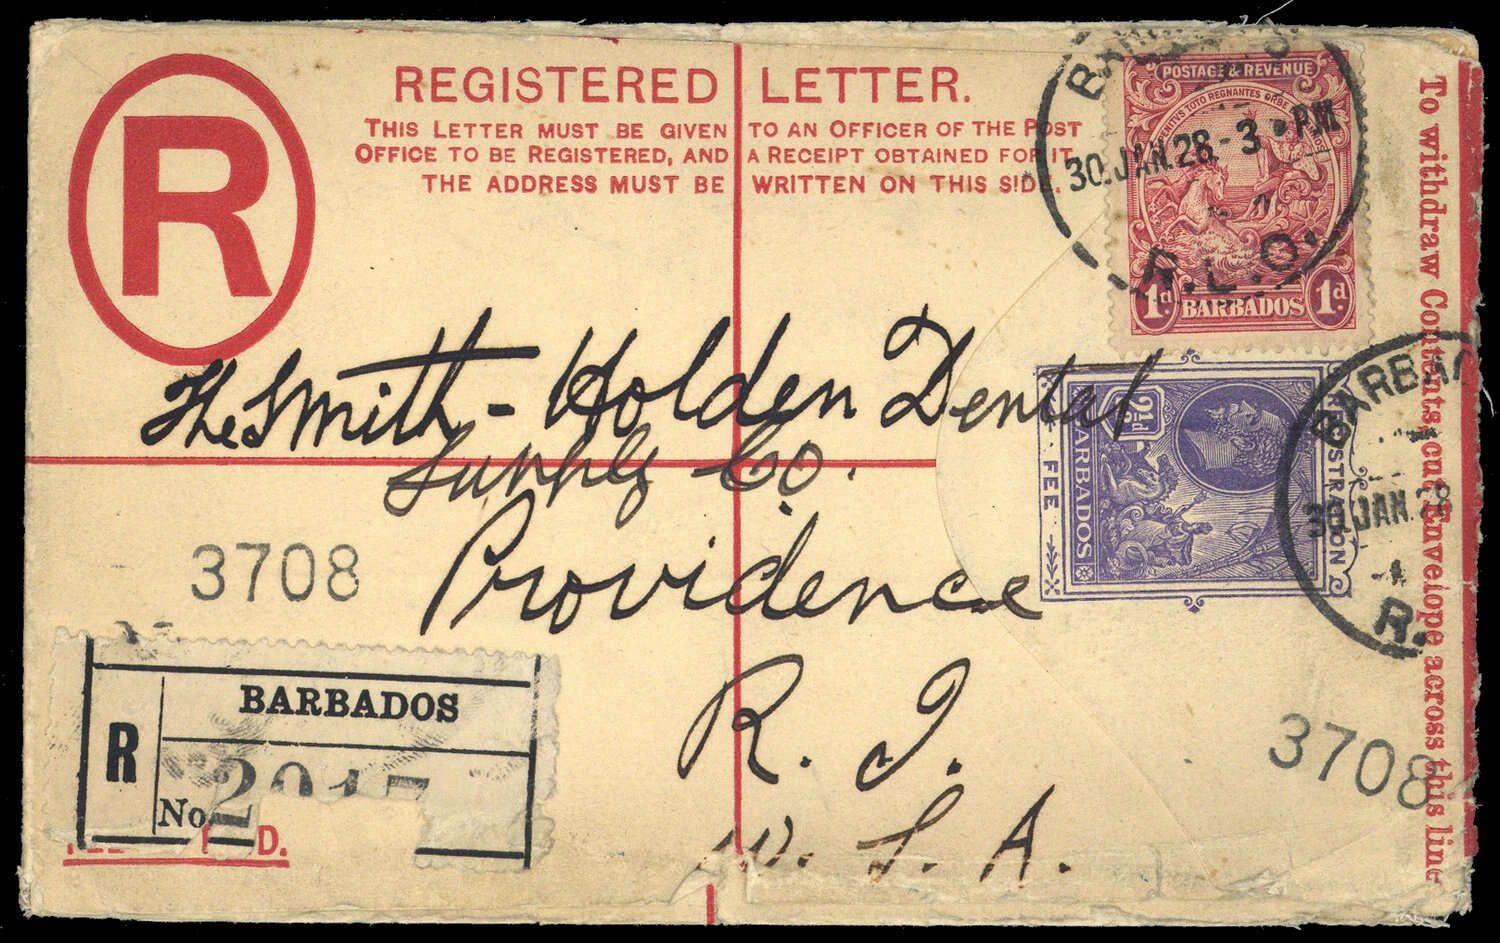 R
REGISTERED LETTER.
THIS LETTER MUST BE GIVEN TO AN OFFICER OF THE POST
OFFICE TO BE REGISTERED, AND A RECEIPT OBTAINED FOR IT.
THE ADDRESS MUST BE WRITTEN ON THIS SIDE.
POSTAGE & REVENUE
30.JAN.28.-3 PM
R.L.O.
1d. BARBADOS 1d.
The Smith-Holden Dental
Supply Co.
Providence
R. I.
U. S. A.
FEE
BARBADOS
2½d
30.JAN.28
R.
3708
BARBADOS
R
No
3708
To withdraw Contents, cut Envelope across this line